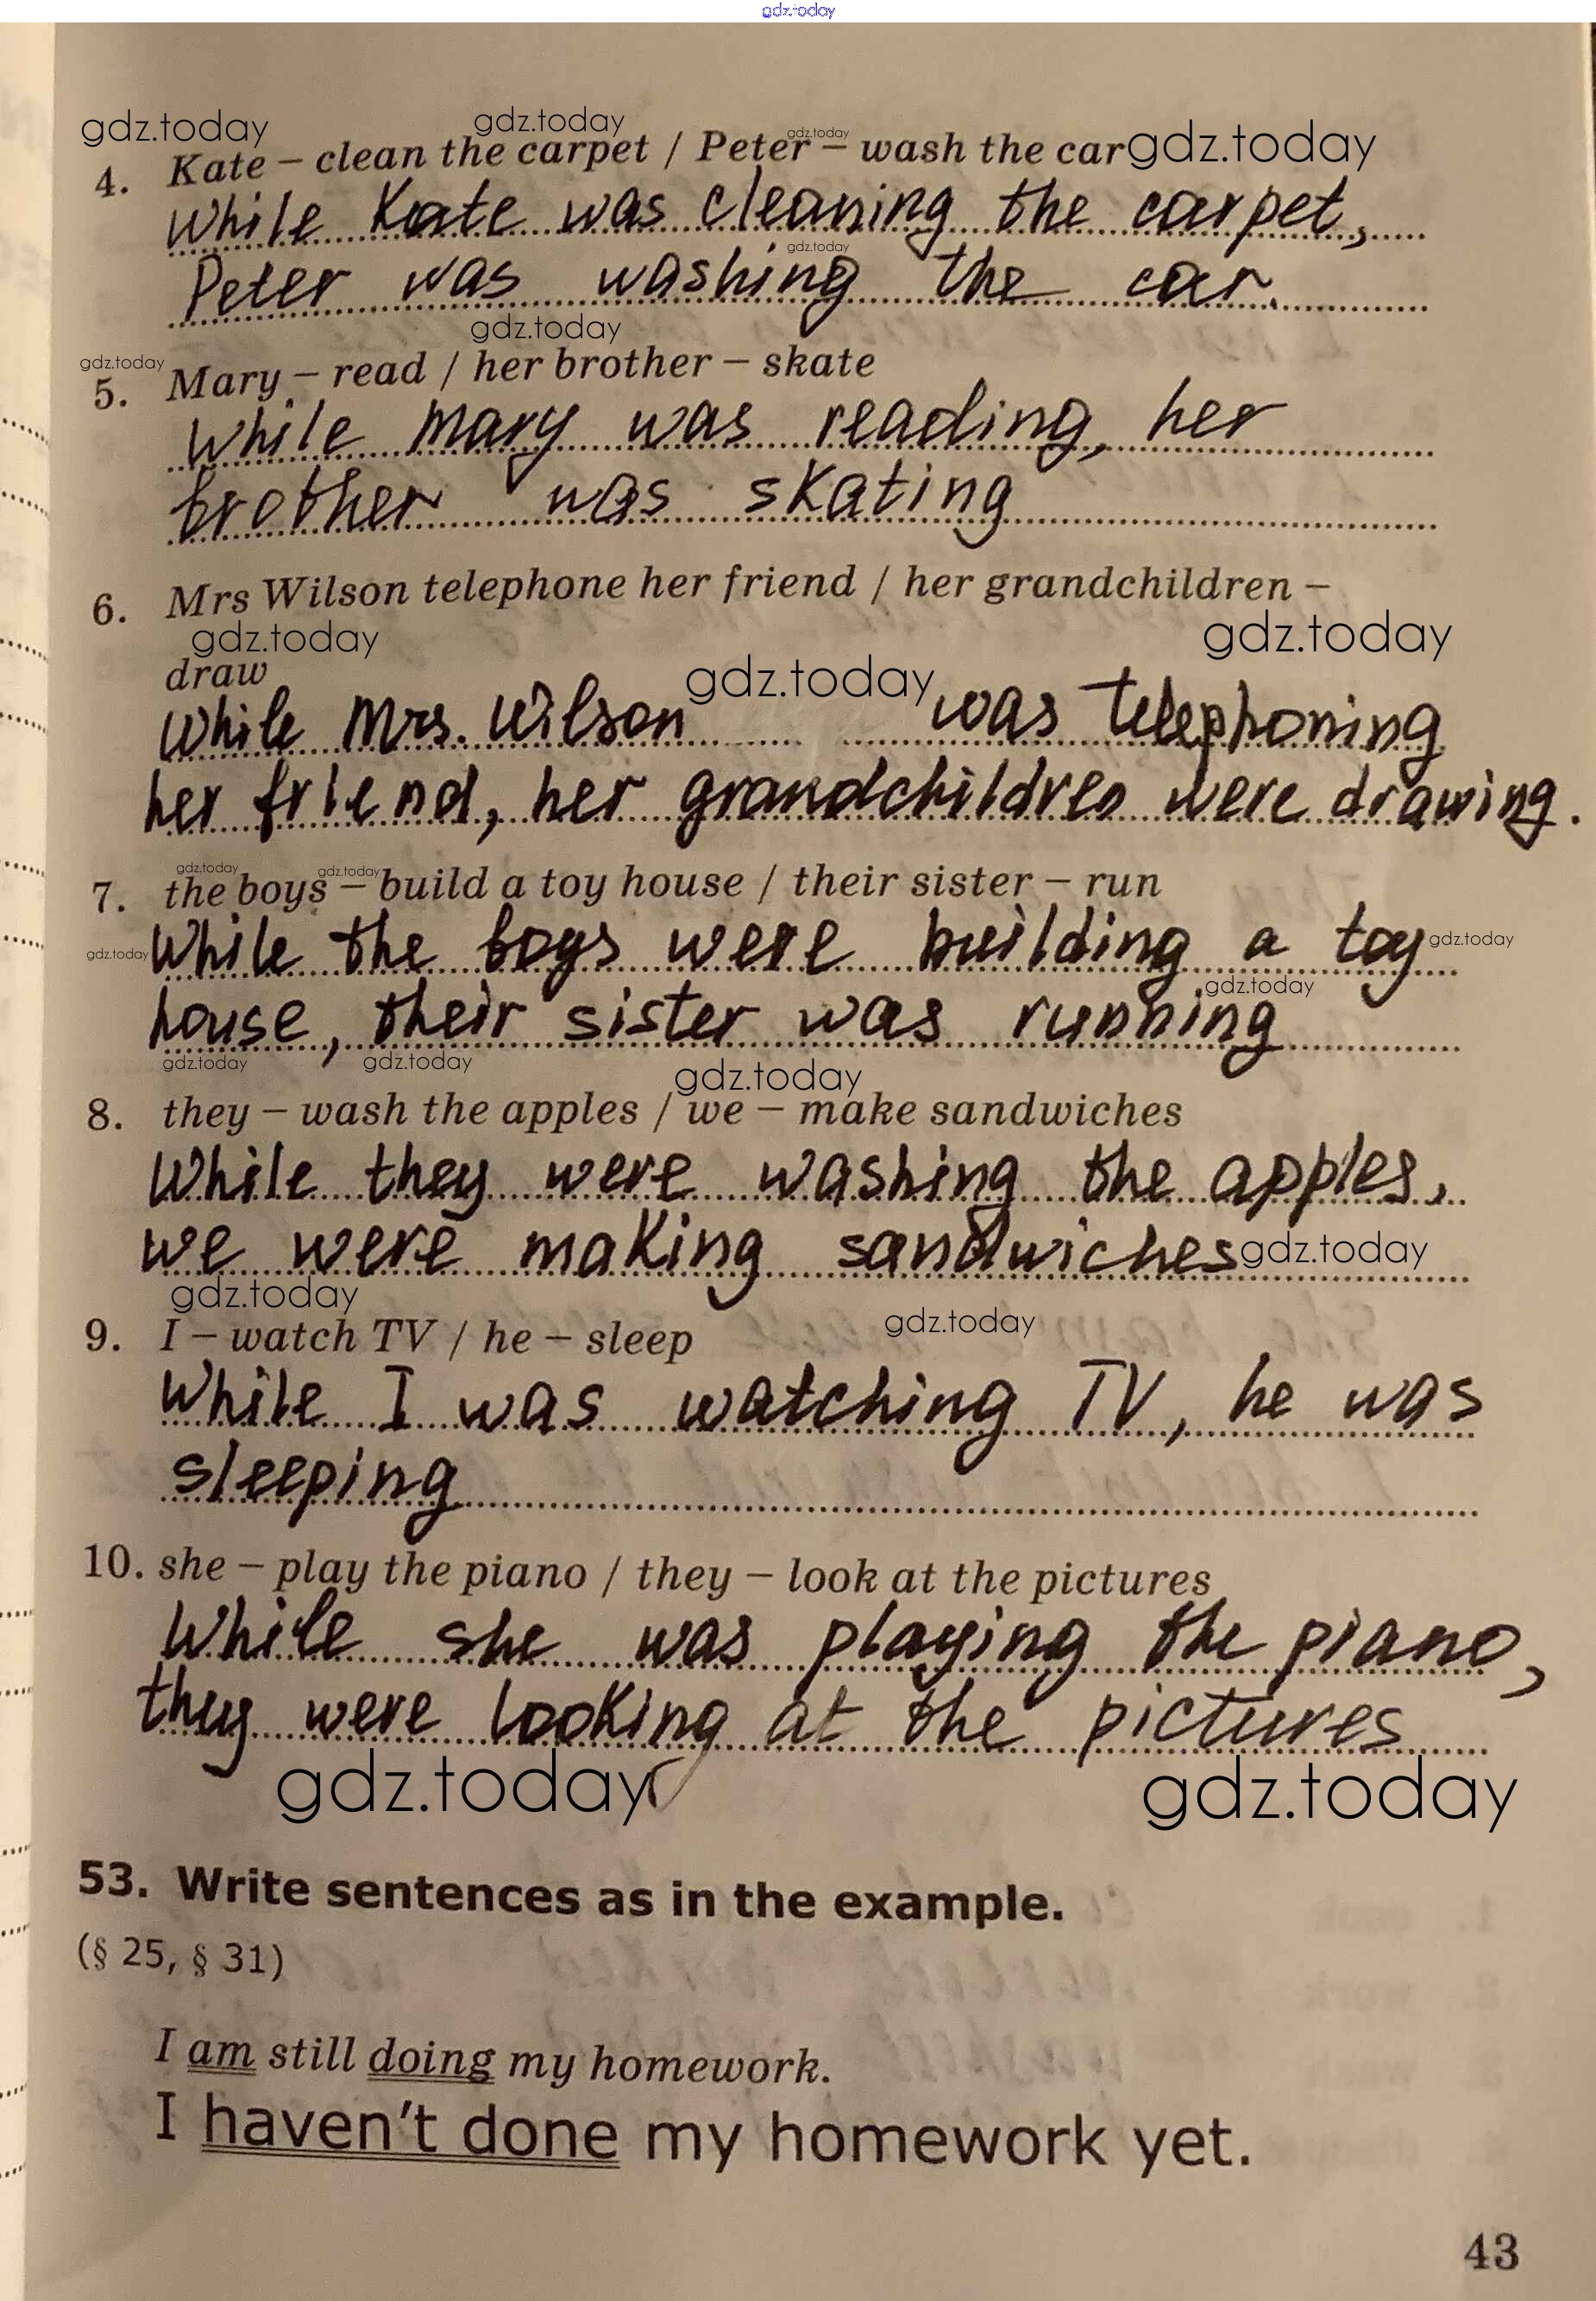 gdz.today
gdz.today gdz.today gdz.today gdz.today
4. Kate – clean the carpet / Peter – wash the car
While Kate was cleaning the carpet,
gdz.today
Peter was washing the car.
gdz.today
gdz.today
5. Mary – read / her brother – skate
While Mary was reading, her
brother was skating
6. Mrs Wilson telephone her friend / her grandchildren –
gdz.today gdz.today
draw
gdz.today
While Mrs. Wilson was telephoning
her friend, her grandchildren were drawing.
gdz.today gdz.today
7. the boys – build a toy house / their sister – run
gdz.today While the boys were building a toy gdz.today
gdz.today
house, their sister was running
gdz.today gdz.today gdz.today
8. they – wash the apples / we – make sandwiches
While they were washing the apples,
we were making sandwiches gdz.today
gdz.today gdz.today
9. I – watch TV / he – sleep
While I was watching TV, he was
sleeping
10. she – play the piano / they – look at the pictures
While she was playing the piano,
they were looking at the pictures
gdz.today gdz.today
53. Write sentences as in the example.
(§ 25, § 31)
I am still doing my homework.
I haven't done my homework yet.
43